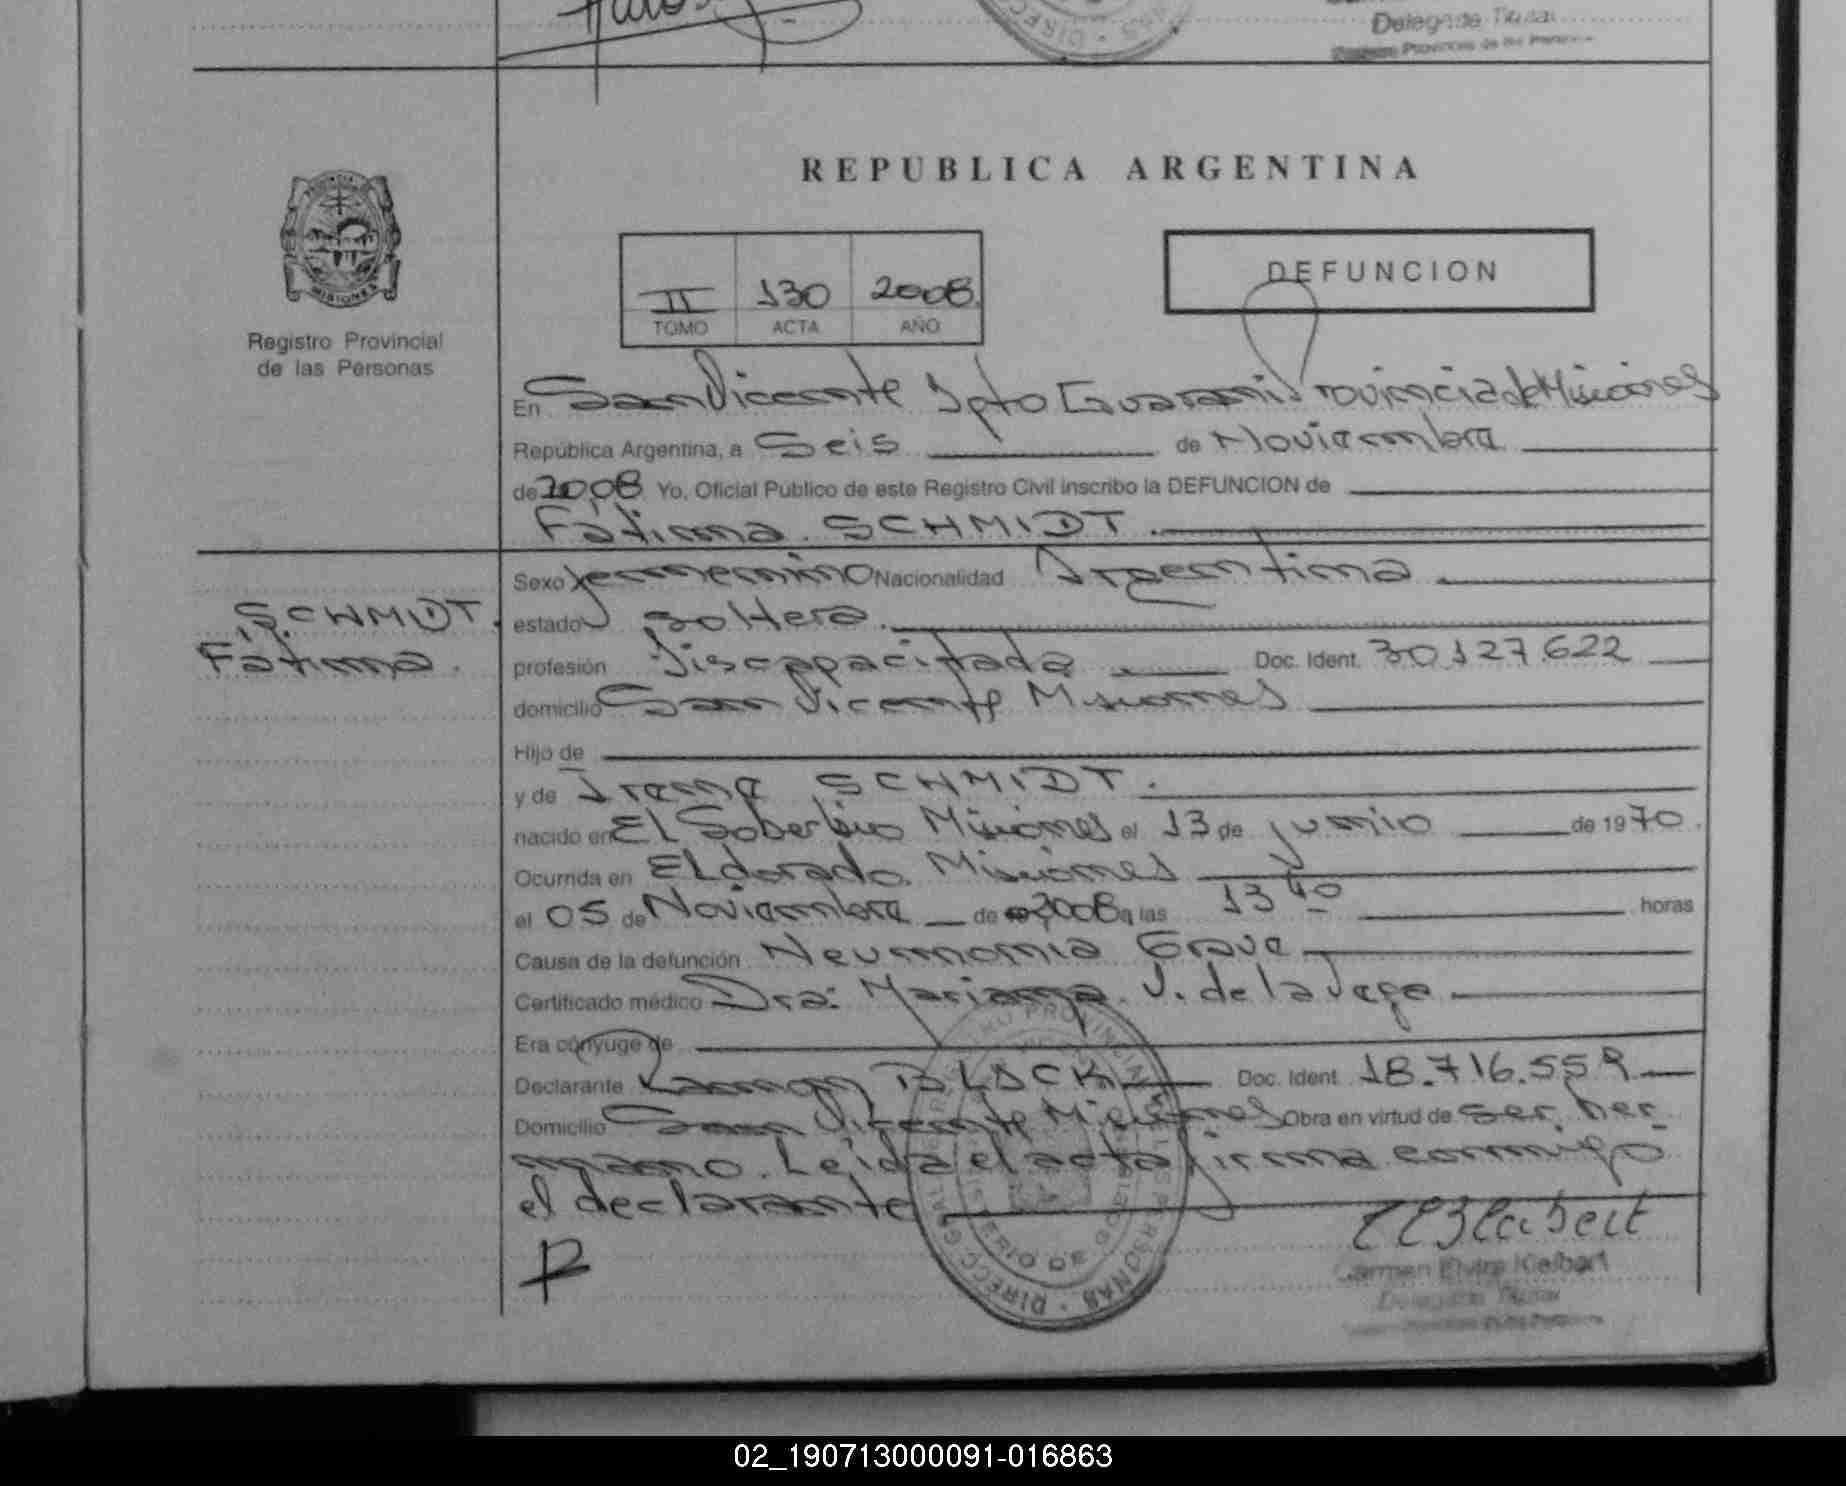 Delegada Titular
REPUBLICA ARGENTINA
II 130 2008
TOMO ACTA AÑO
DEFUNCION
MISIONES
Registro Provincial
de las Personas
En San Vicente Dpto Guarani Provincia de Misiones
República Argentina, a Seis de Noviembre
de 2008 Yo, Oficial Público de este Registro Civil inscribo la DEFUNCION de
Fátima SCHMIDT.
SCHMIDT.
Fátima.
Sexo femenino Nacionalidad Argentina
estado soltera.
profesión Discapacitada Doc. Ident. 30.127.622
domicilio San Vicente Misiones
Hijo de
y de Irema SCHMIDT.
nacido en El Soberbio Misiones el 13 de junio de 1970.
Ocurrida en Eldorado Misiones
el 05 de Noviembre de 2008 a las 13 40 horas
Causa de la defunción Neumonia Grave
Certificado médico Dra: Mariana V. de la Vega
Era cónyuge de
Declarante Ramon BLACK Doc. Ident. 18.716.559
Domicilio San Vicente Misiones Obra en virtud de ser her
mano. Leida el acta firma conmigo
el declarante
Carmen Elvira
Delegada Titular
02_190713000091-016863